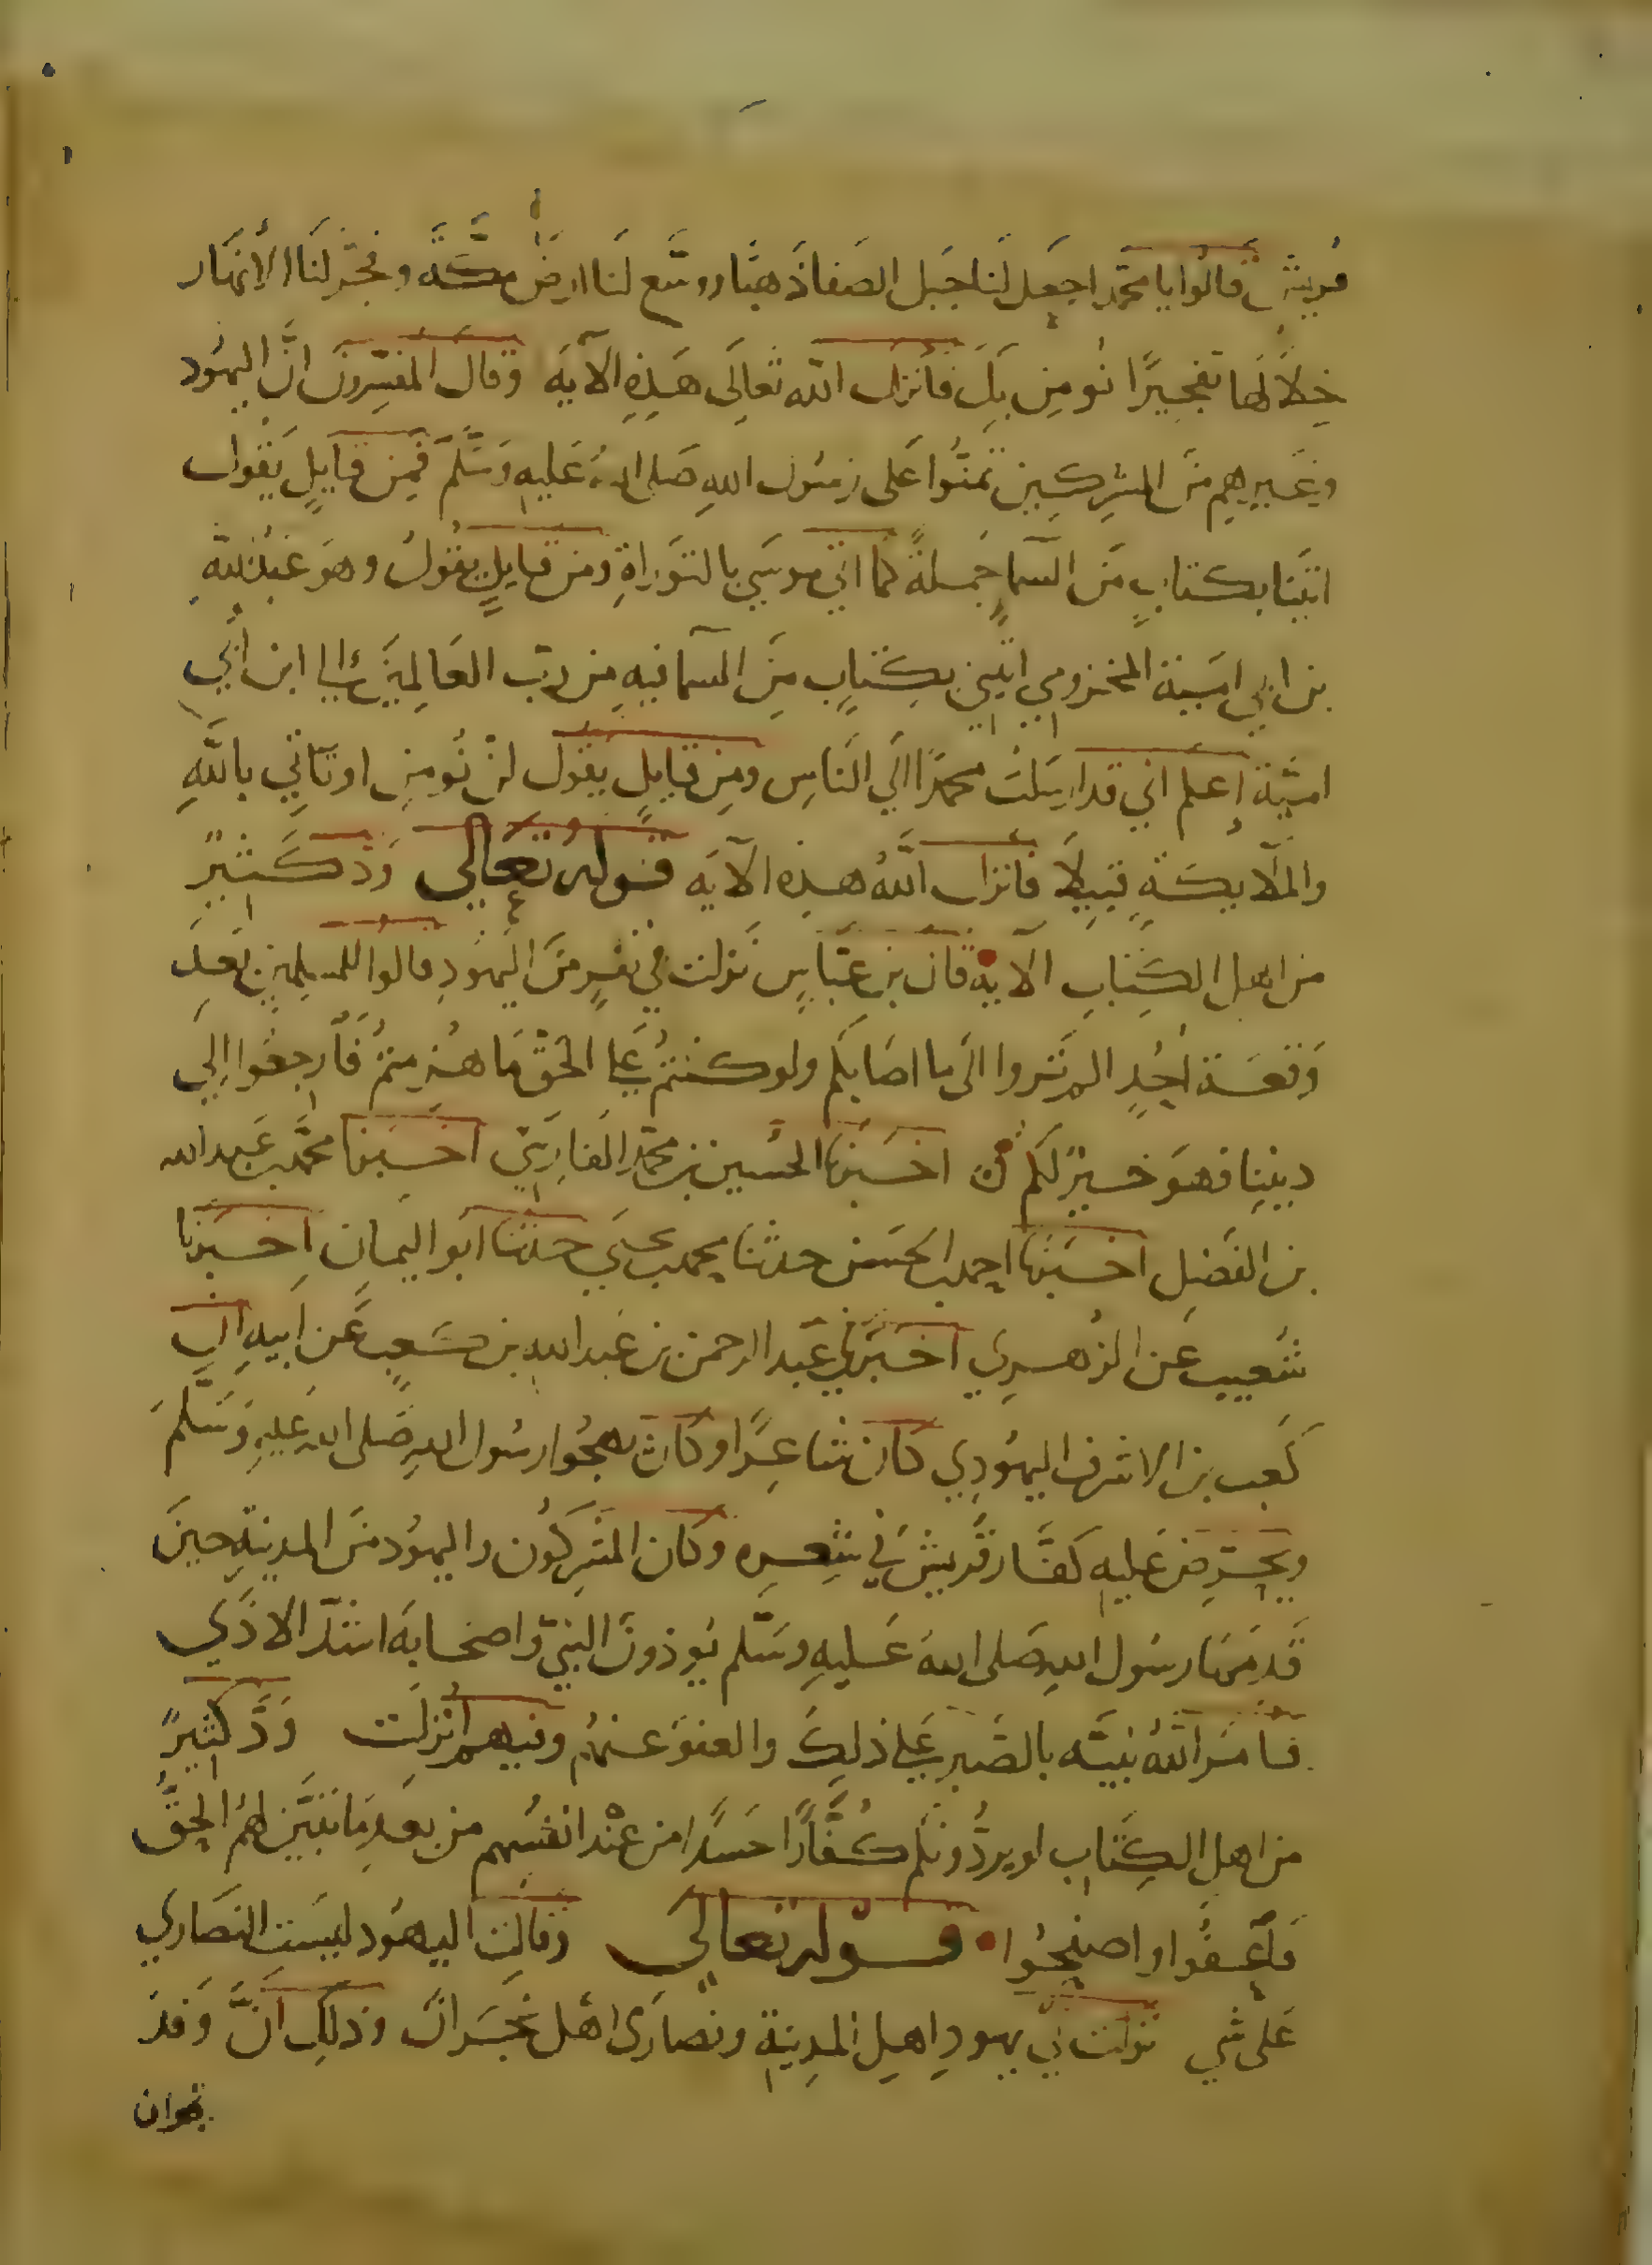 قريش قالوا يا محمد اجعل لنا جبل الصفا ذهبًا ووسع لنا ارض مكة وفجر لنا الأنهار
خلالها تفجيرًا نومن بك فانزل الله تعالى هذه الآية وقال المفسرون ان اليهود
وغيرهم من المشركين تمنوا على رسول الله صلى الله عليه وسلم فمن قايل يقول
اتينا بكتاب من السما جملة كما اتى موسى بالتوراة ومن قايل يقول وهو عبد الله
بن ابي امية المخزومي ايتيني بكتاب من السما فيه من رب العالمين الى ابن أبي
امية إعلم اني قد ارسلت محمدًا الى الناس ومن قايل يقول لن نومن او تاتي بالله
والملايكة قبيلا فانزل الله هذه الآية قوله تعالى ود كثير
من اهل الكتاب الآية قال بن عباس نزلت في نفر من اليهود قالوا للمسلمين بعد
وقعة أحد الم تروا الى ما اصابكم ولو كنتم على الحق ما هزمتم فارجعوا الى
ديننا فهو خير لكم اخبرنا الحسين بن محمد الفارسي اخبرنا محمد بن عبد الله
بن الفضل اخبرنا احمد بن الحسن حدثنا محمد بن يحيى حدثنا ابو اليمان اخبرنا
شعيب عن الزهري اخبرني عبد الرحمن بن عبد الله بن كعب عن ابيه ان
كعب بن الاشرف اليهودي كان شاعرًا وكان يهجوا رسول الله صلى الله عليه وسلم
ويحرض عليه كفار قريش في شعره وكان المشركون واليهود من المدينة حين
قدمها رسول الله صلى الله عليه وسلم يوذون النبي واصحابه اشد الاذى
فامر الله نبيه بالصبر على ذلك والعفو عنهم وفيهم انزلت ود كثير
من اهل الكتاب لو يردونكم كفارًا حسدًا من عند انفسهم من بعد ما تبين لهم الحق
فاعفوا واصفحوا قوله تعالى وقالت اليهود ليست النصارى
على شي نزلت في يهود اهل المدينة ونصارى اهل نجران وذلك ان وفد
نجران